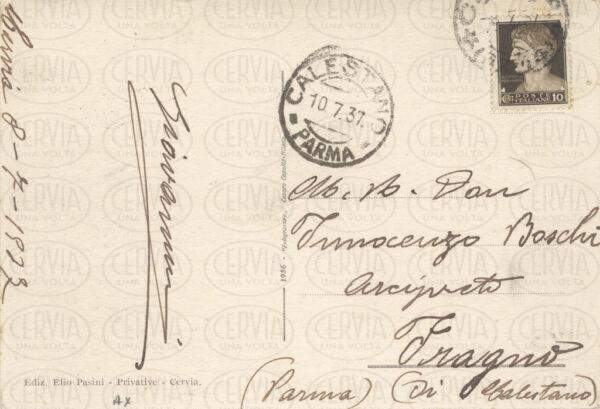 Cervia 8-7-1937
Giovanni
CALESTANO
10.7.37.
PARMA
POSTE
ITALIANE
10
M. R. Don
Innocenzo Boschi
Arciprete
Fragno
(Parma) (Di Calestano)
1936 -
Ediz. Elio Pasini - Privative - Cervia.
AX
CERVIA
UNA VOLTA